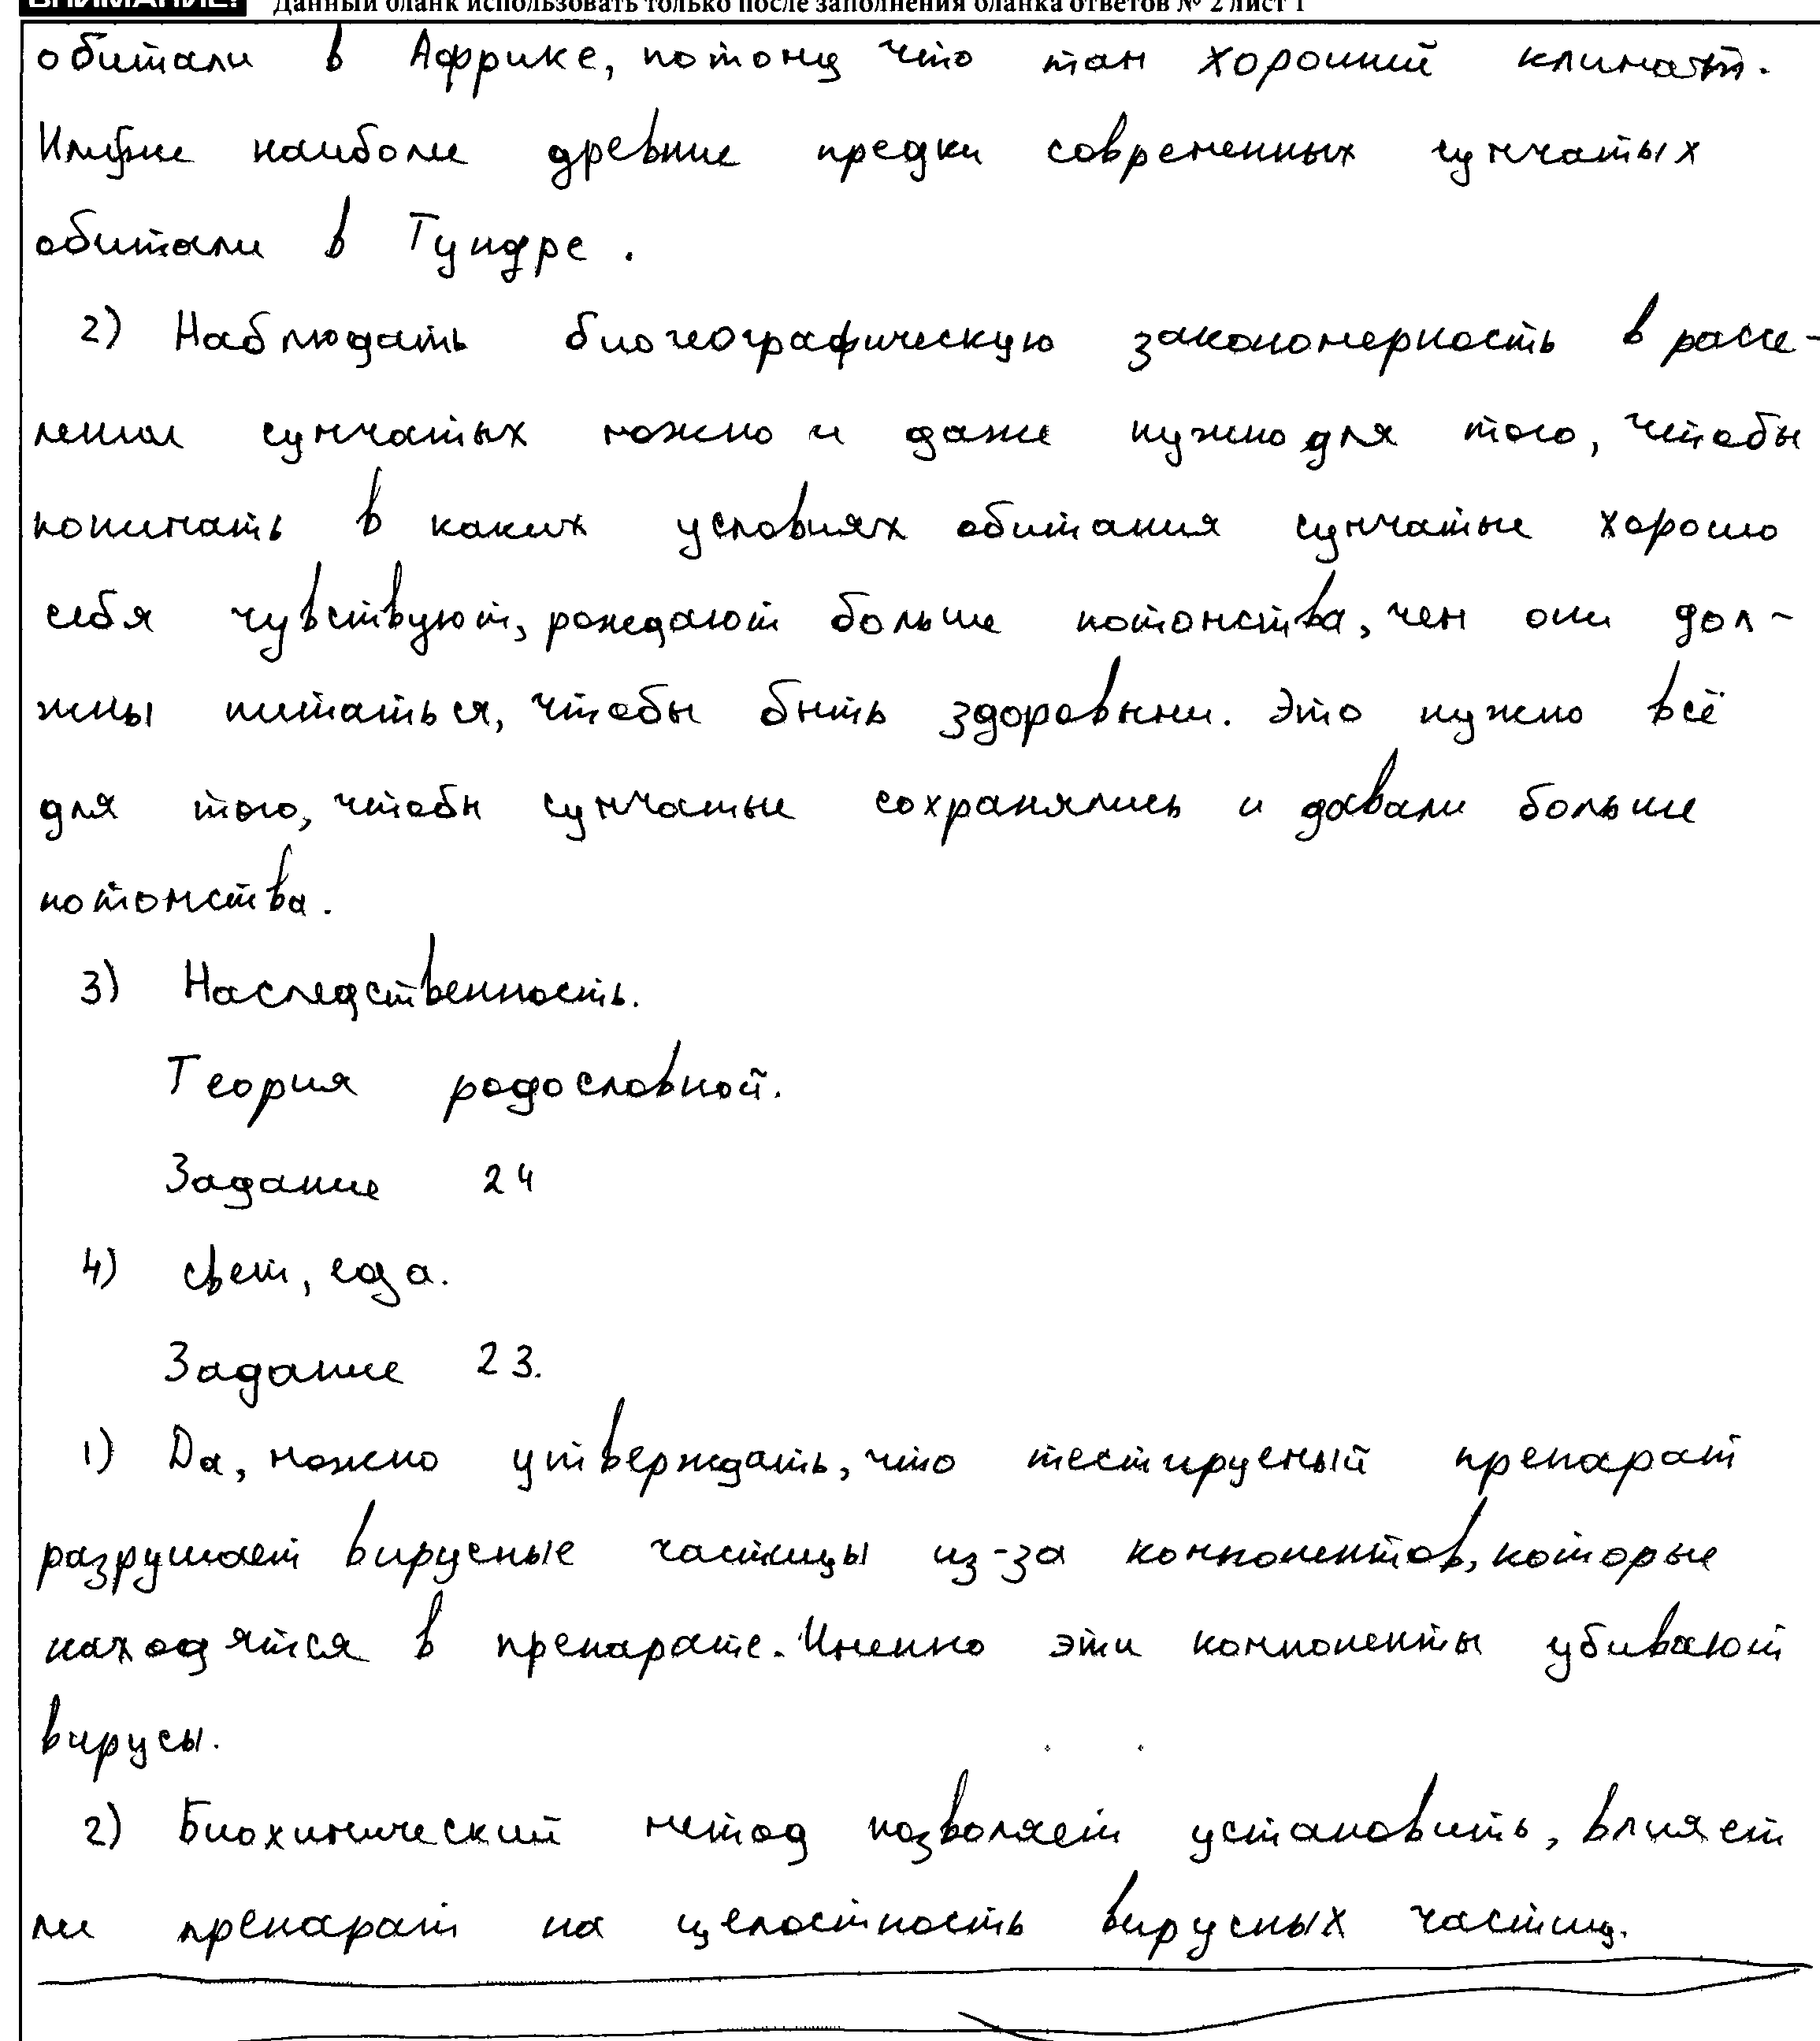 ВНИМАНИЕ! Данный бланк использовать только после заполнения бланка ответов № 2 лист 1
обитали в Африке, потому что там хороший климат.
наиболее древние предки современных сумчатых
обитали в Тундре.
2) Наблюдать биогеографическую закономерность в рассе-
лении сумчатых можно и даже нужно для того, чтобы
понимать в каких условиях обитания сумчатые хорошо
себя чувствуют, рождают больше потомства, чем они дол-
жны питаться, чтобы быть здоровыми. Это нужно всё
для того, чтобы сумчатые сохранялись и давали больше
потомства.
3) Наследственность.
Теория родословной.
Задание 24
4) свет, еда.
Задание 23.
1) Да, можно утверждать, что тестируемый препарат
разрушает вирусные частицы из-за компонентов, которые
находятся в препарате. Именно эти компоненты убивают
вирусы.
2) Биохимический метод позволяет установить, влияет
ли препарат на целостность вирусных частиц.